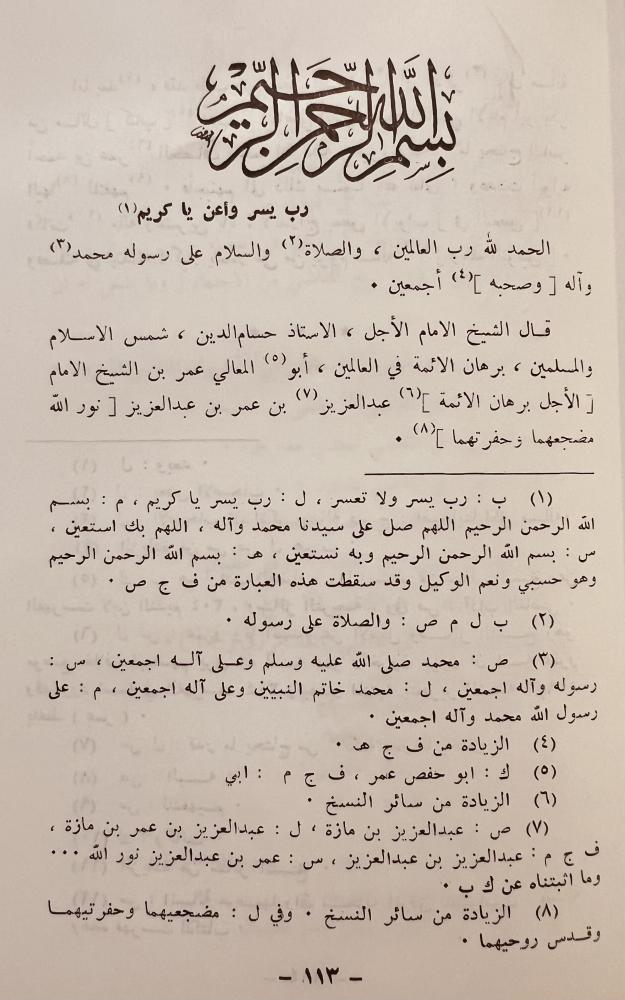 بسم الله الرحمن الرحيم
رب يسر وأعن يا كريم(١)
الحمد لله رب العالمين ، والصلاة(٢) والسلام على رسوله محمد(٣)
وآله [ وصحبه ](٤) أجمعين ٠
قـال الشيخ الامام الأجل ، الاستاذ حسام‌الدين ، شمس الاسـلام
والمسلمين ، برهان الائمة في العالمين ، أبو(٥) المعالي عمر بن الشيخ الامام
[ الأجل برهان الائمة ](٦) عبدالعزيز(٧) بن عمر بن عبدالعزيز [ نور الله
مضجعهما وحفرتهما ](٨) ٠
(١) ب : رب يسر ولا تعسر ، ل : رب يسر يا كريم ، م : بسـم
الله الرحمن الرحيم اللهم صل على سيدنا محمد وآله ، اللهم بك استعين ،
س : بسم الله الرحمن الرحيم وبه نستعين ، هـ : بسم الله الرحمن الرحيم
وهو حسبي ونعم الوكيل وقد سقطت هذه العبارة من ف ج ص ٠
(٢) ب ل م ص : والصلاة على رسوله ٠
(٣) ص : محمد صلى الله عليه وسلم وعـلى آلـه اجمعين ، س :
رسوله وآله اجمعين ، ل : محمد خاتم النبيين وعلى آله اجمعين ، م : على
رسول الله محمد وآله اجمعين ٠
(٤) الزيادة من ف ج هـ ٠
(٥) ك : ابو حفص عمر ، ف ج م : ابي
(٦) الزيادة من سائر النسخ ٠
(٧) ص : عبدالعزيز بن مازة ، ل : عبدالعزيز بن عمر بن مازة ،
ف ج م : عبدالعزيز بن عبدالعزيز ، س : عمر بن عبدالعزيز نور الله ٠٠٠
وما اثبتناه عن ك ب ٠
(٨) الزيادة من سائر النسخ ٠ وفي ل : مضجعيهما وحفرتيهمـا
وقـدس روحيهما ٠
- ١١٣ -